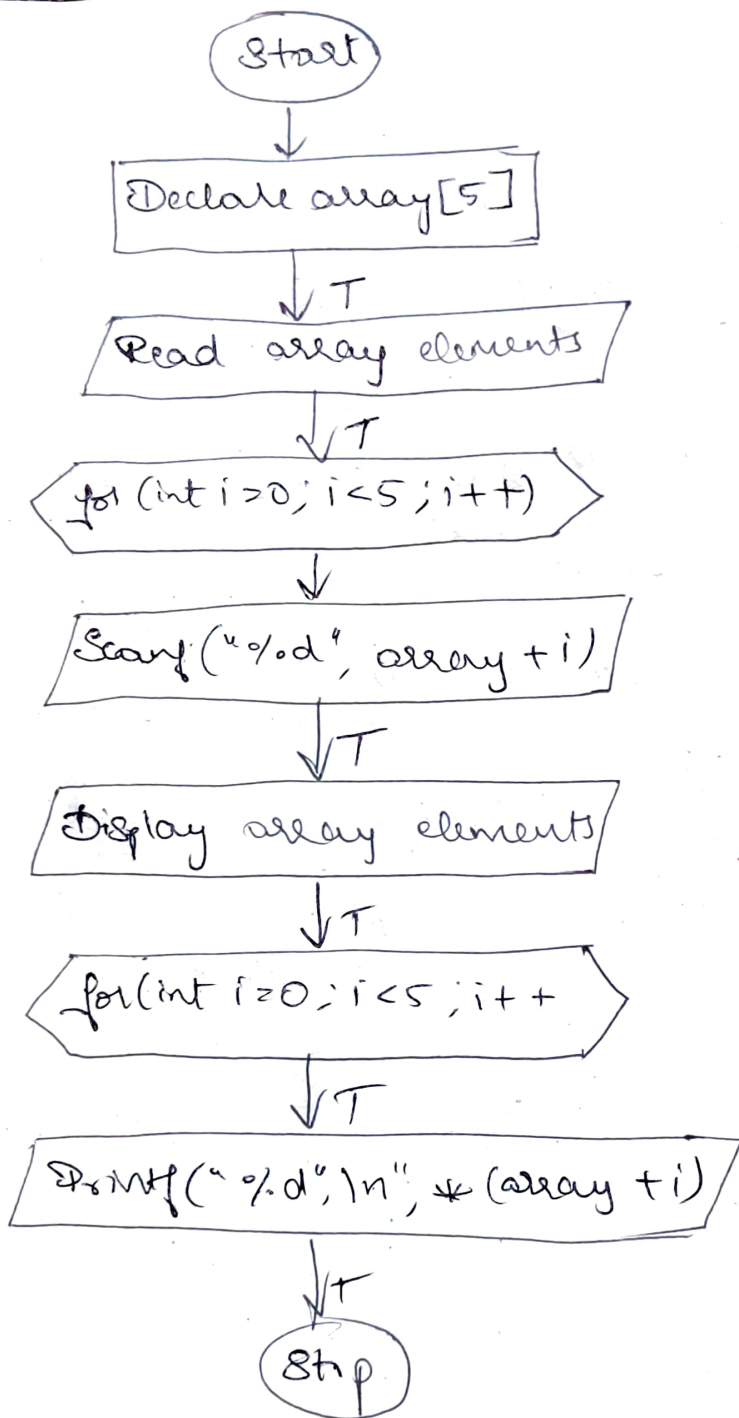 Start
Declare array[5]
T
Read array elements
T
for (int i=0; i<5; i++)
Scanf("%d", array + i)
T
Display array elements
T
for(int i=0; i<5; i++
T
Printf("%d",\n", * (array + i)
T
Stop